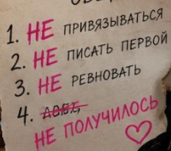 1. НЕ ПРИВЯЗЫВАТЬСЯ
2. НЕ ПИСАТЬ ПЕРВОЙ
3. НЕ РЕВНОВАТЬ
4.
НЕ ПОЛУЧИЛОСЬ